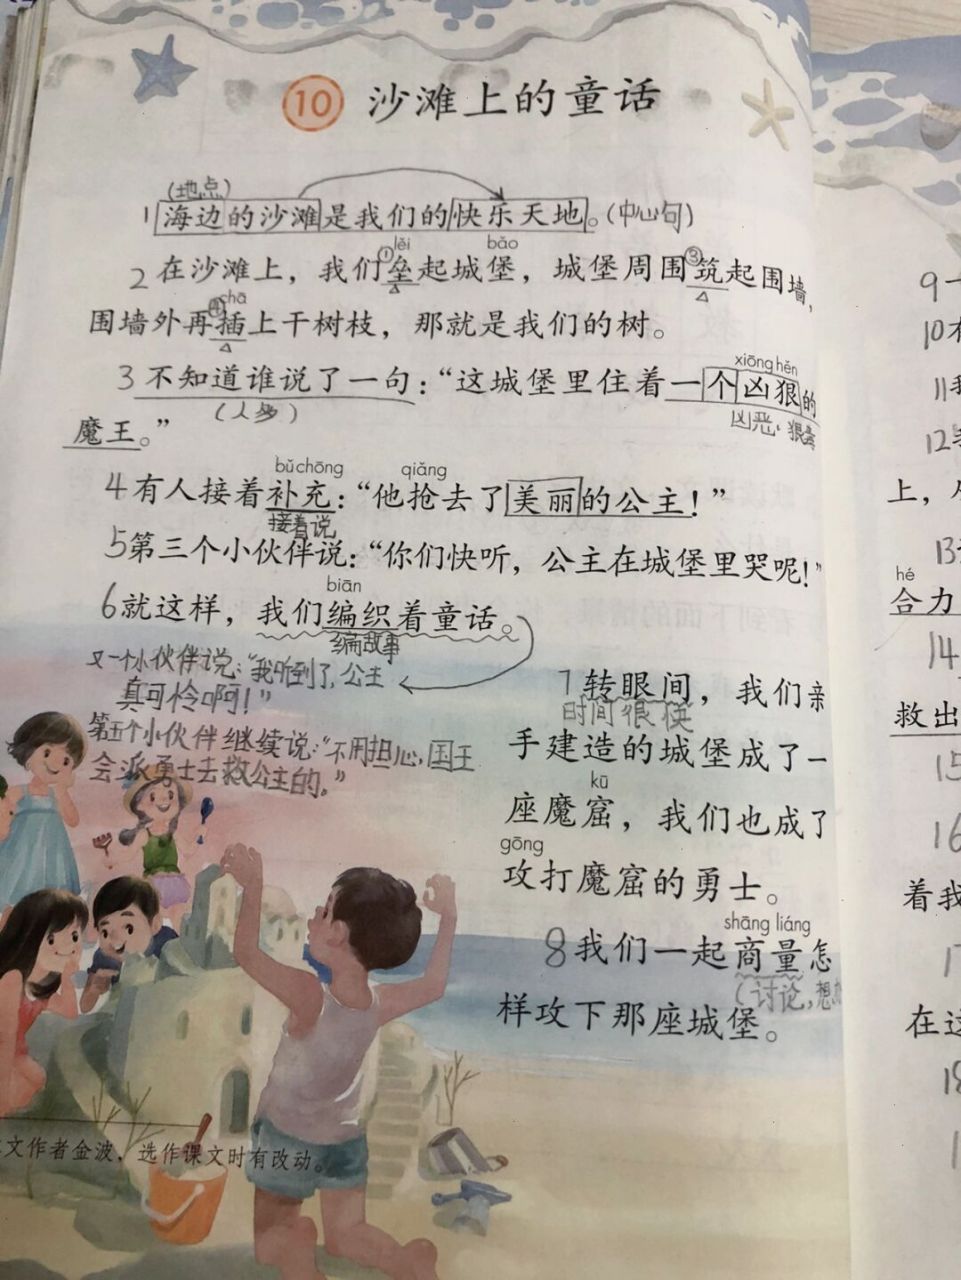 10 沙滩上的童话
(地点)
1 海边的沙滩是我们的快乐天地。(中心句)
lěi bǎo
2 在沙滩上，我们①垒起城堡，城堡周围③筑起围墙，
chā
围墙外再④插上干树枝，那就是我们的树。
xiōng hěn
3 不知道谁说了一句：“这城堡里住着一个凶狠的
(人多) 凶恶、狠
魔王。”
bǔ chōng qiǎng
4 有人接着补充：“他抢去了美丽的公主！”
接着说
5 第三个小伙伴说：“你们快听，公主在城堡里哭呢！”
biān
6 就这样，我们编织着童话。
编故事
又一个小伙伴说：“我听到了，公主
真可怜啊！”
第五个小伙伴继续说：“不用担心，国王
会派勇士去救公主的。”
7 转眼间，我们亲
时间很快
手建造的城堡成了一
kū
座魔窟，我们也成了
gōng
攻打魔窟的勇士。
shāng liáng
8 我们一起商量怎
(讨论，想
样攻下那座城堡。
文作者金波，选作课文时有改动。
9
10
11
12
上，
13
hé
合力
14
救出
15
16
着我
17
在这
18